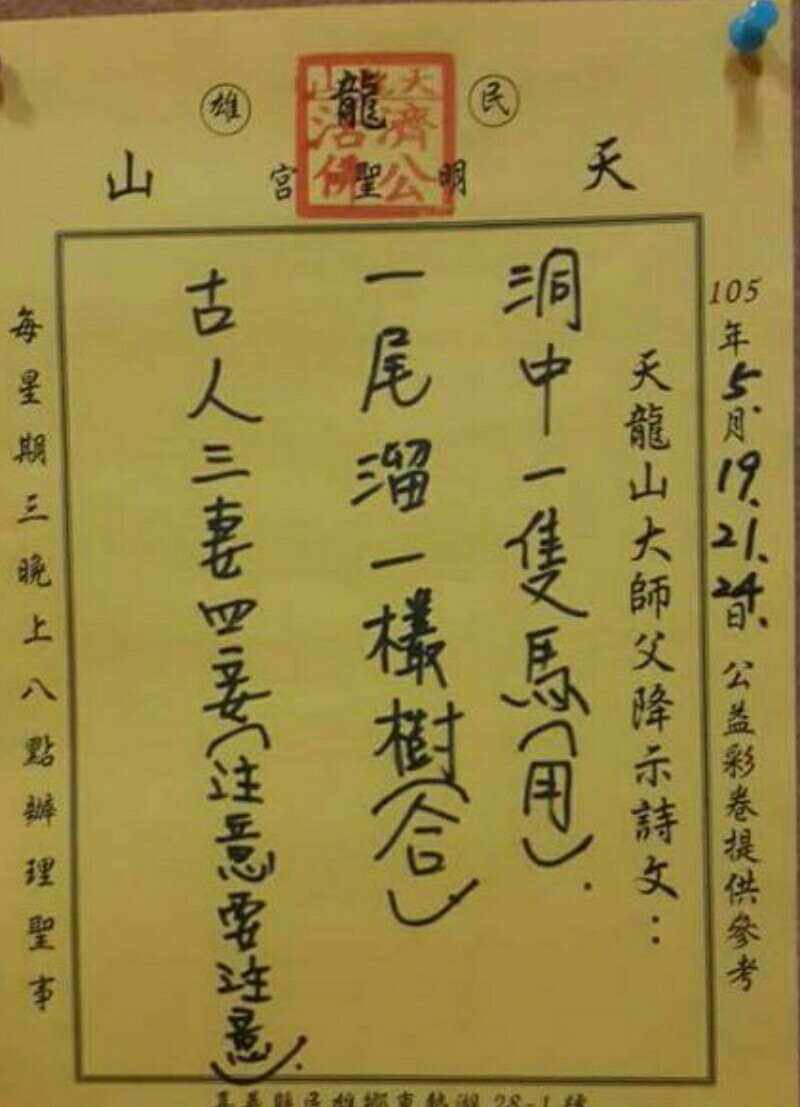 民雄
天龍山
明聖宮
天龍山
濟公
活佛
105年5月19.21.24.日公益彩卷提供參考
天龍山大師父降示詩文：
洞中一隻馬(用).
一尾溜一欉樹(合).
古人三妻四妾(注意要注意).
每星期三晚上八點辦理聖事
嘉義縣民雄鄉東勢湖28-1號